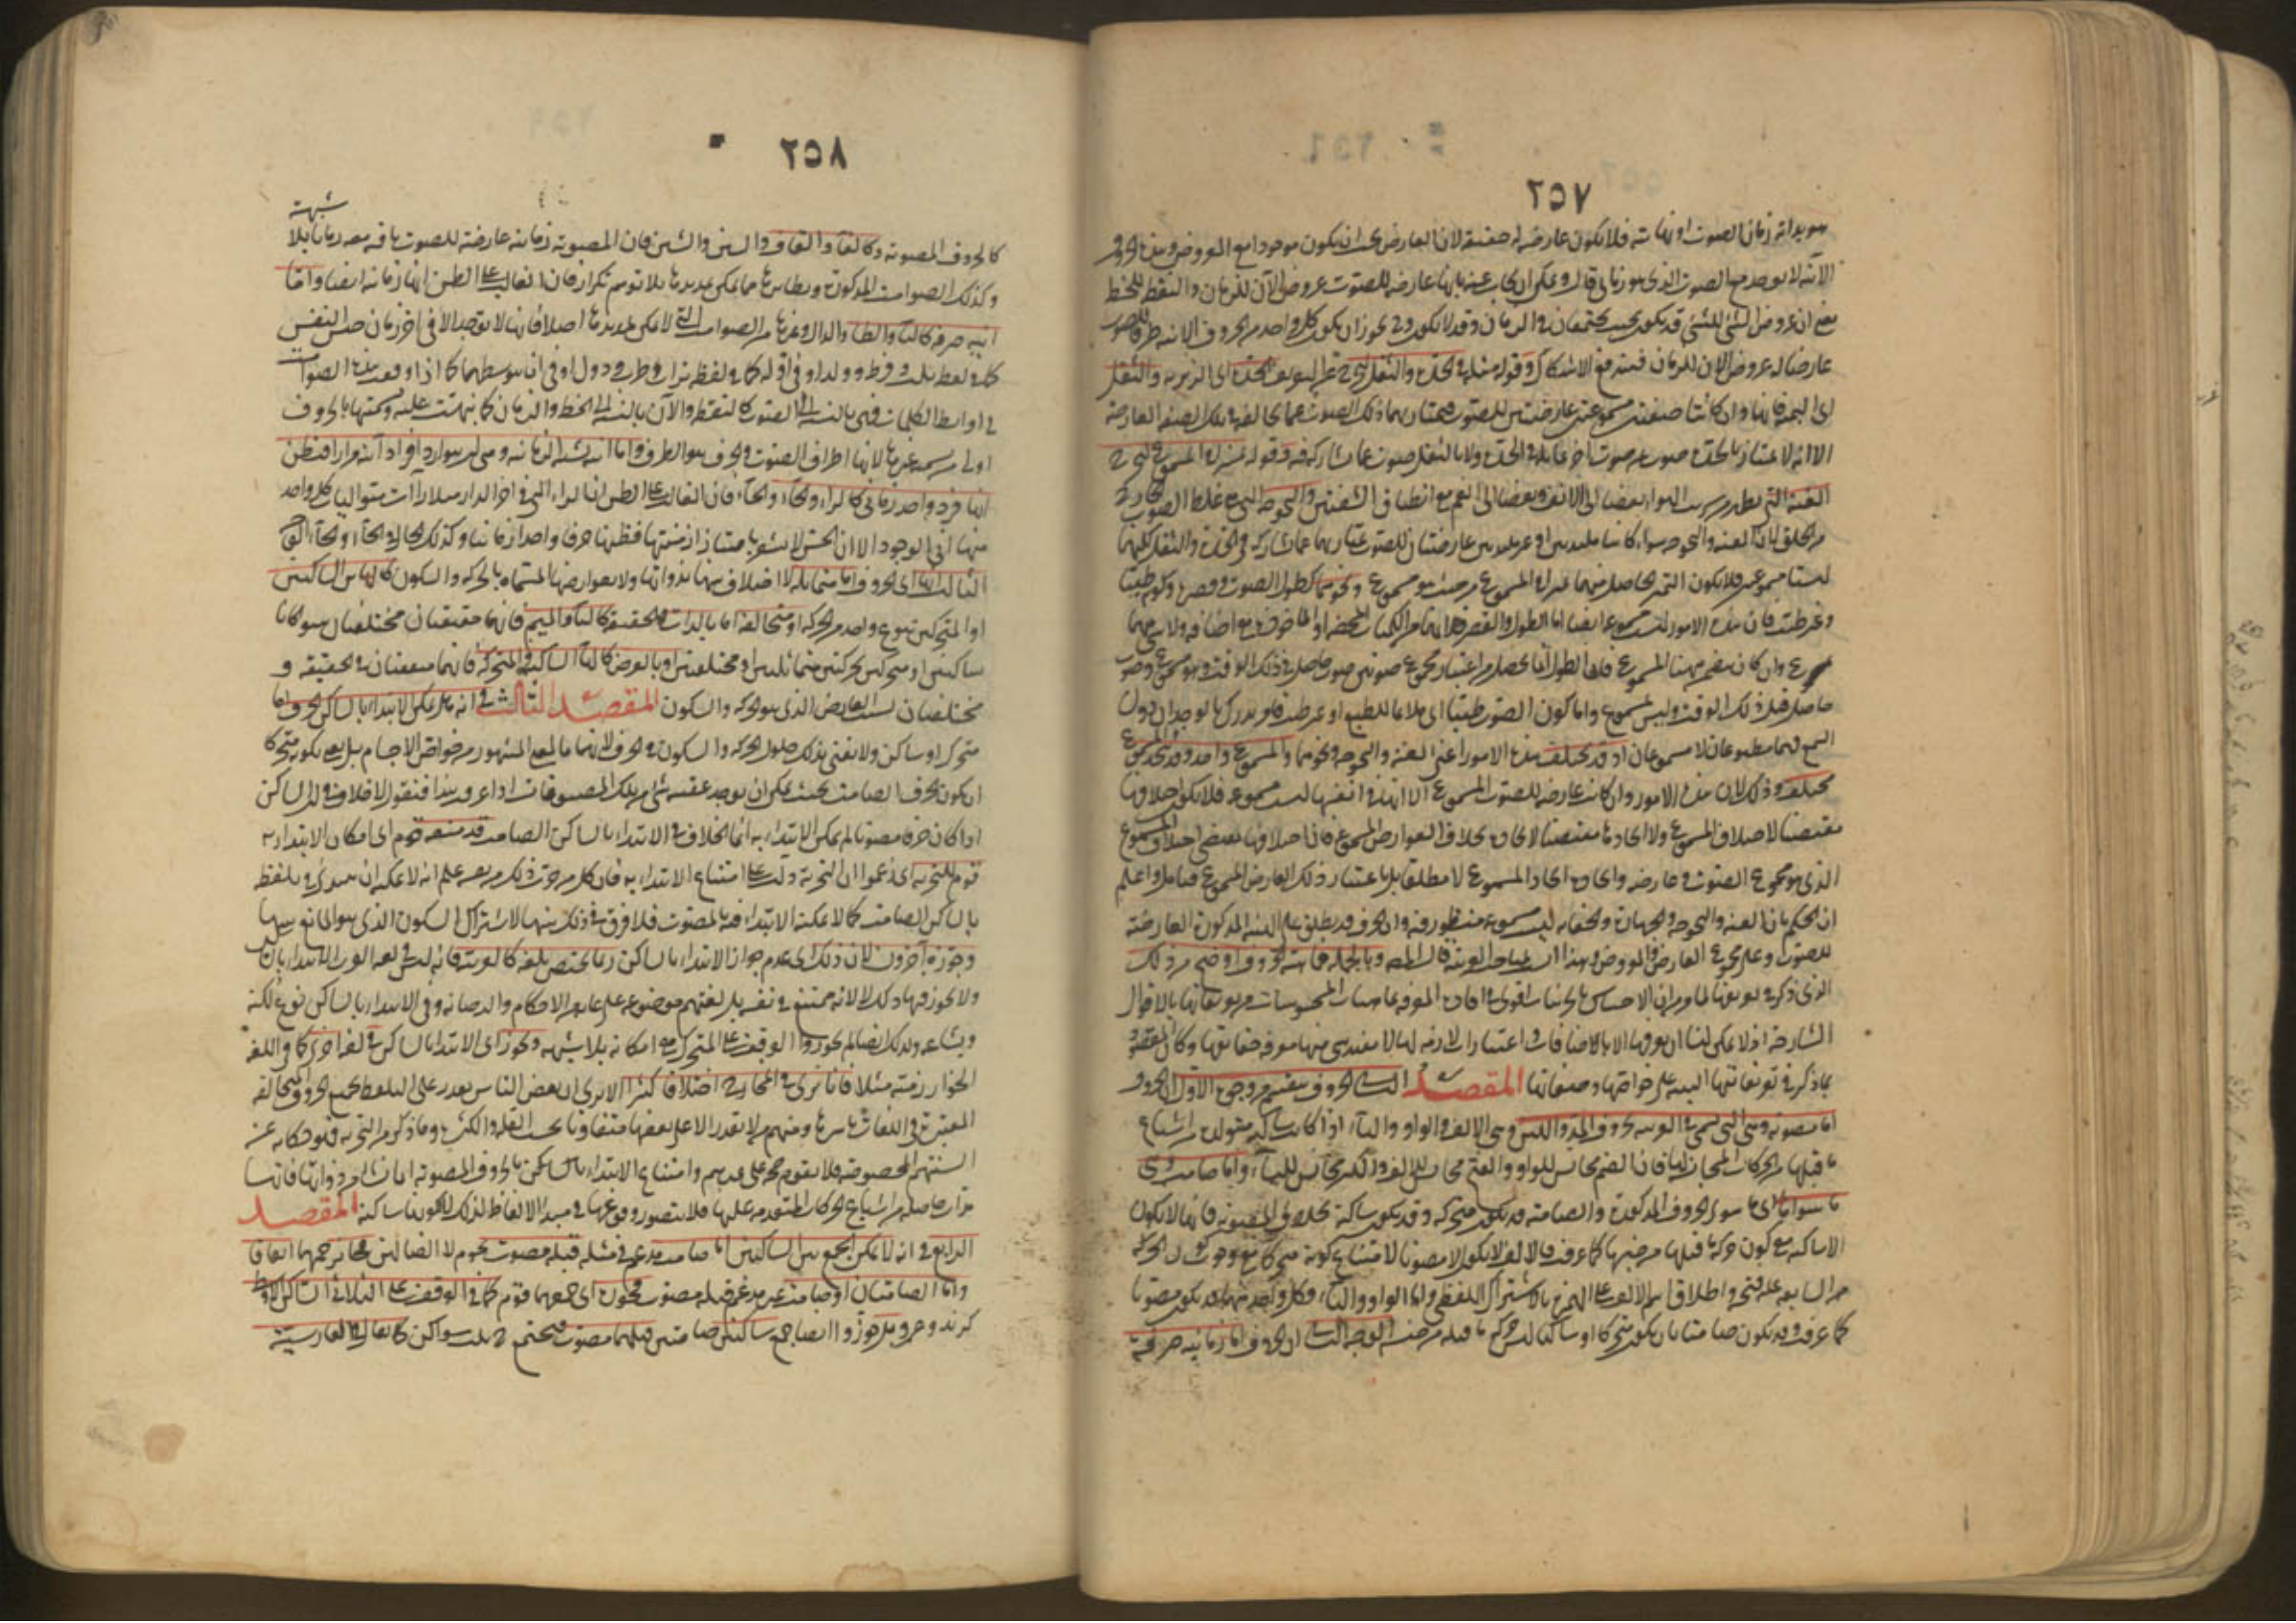 ٢٥٧
هو بداية زمان الصوت او نهايته فلا يكون عارضا له حقيقة لان العارض يجب ان يكون موجودا مع المعروض وهذه الحروف
الآنية لا توجد مع الصوت الذي هو زماني قال ويمكن ان يجاب عنه بانها عارضة للصوت عروض الآن للزمان والنقطة للخط
يعني ان عروض الشئ للشئ قد يكون بحيث يجتمعان في الزمان وقد لا يكون وح يجوز ان يكون كل واحد من الحروف الآنية طرفا للصوت
عارضا له عروض الآن للزمان فيندفع الاشكال وقوله مثله في الحدة والثقل ليخرج عن التعريف الحدة اى الزيرية والثقل
اى البمية فانهما وان كانتا صفتين مسموعتين عارضتين للصوت يمتاز بهما ذلك الصوت عما يخالفه في تلك الصفة العارضة
الا انه لا يمتاز بالحدة صوت عن صوت آخر يماثله في الحدة ولا بالثقل صوت عما يشاركه فيه وقوله تميزا في المسموع ليخرج
الغنة التي تظهر من تسرب الهواء بعضا الى الانف وبعضا الى الفم مع انطباق الشفتين والبحوحة التي هي غلظ الصوت الخارج
من الحلق فان الغنة والبحوحة سواء كانتا ملذتين او غير ملذتين عارضتان للصوت يمتاز بهما عما يشاركه في الحدة والثقل لكنهما
ليستا مسموعتين فلا يكون التميز الحاصل منهما تميزا في المسموع من حيث هو مسموع ونحوهما كطول الصوت وقصره وكونه طيبا
وغير طيب فان هذه الامور ليست مسموعة ايضا اما الطول والقصر فلانهما من الكميات المحضة او المأخوذة مع اضافة ولا شئ منهما
بمسموع وان كان يتضمن ههنا المسموع فان الطول انما يحصل من اعتبار مجموع صوتين صوت حاصل في ذلك الوقت وهو مسموع وصوت
حاصل قبل ذلك الوقت وليس بمسموع واما كون الصوت طيبا اى ملائما للطبع او غير طيب فامر يدرك بالوجدان دون
السمع فهما مطبوعان لا مسموعان اذ قد تختلف هذه الامور اعني الغنة والبحوحة ونحوهما والمسموع واحد وقد يتحد والمسموع
مختلف وذلك لان هذه الامور وان كانت عارضة للصوت المسموع الا انها في انفسها ليست مسموعة فلا يكون اختلافها
مقتضيا لاختلاف المسموع ولا اتحادها مقتضيا لاتحاده بخلاف العوارض المسموعة فان اختلافها يقتضي اختلاف المسموع
الذي هو مجموع الصوت وعارضه واتحادها اتحاد المسموع لا مطلقا بل باعتبار ذلك العارض المسموع فتأمل واعلم
ان الحكم بان الغنة والبحوحة والجهارة والخفاء ليست مسموعة منظور فيه وان الحرف قد يطلق على الهيئة المذكورة العارضة
للصوت وعلى مجموع العارض والمعروض وهذا انسب بمباحث العربية قال المص وبالجملة فماهية الحروف اوضح من ذلك
الذي ذكر في تعريفها لما مر من ان الاحساس بالجزئيات اقوى في افادة المعرفة بماهيات المحسوسات من تعريفاتها بالاقوال
الشارحة اذ لا يمكن لنا ان نعرفها الا بالاضافات واعتبارات لازمة لها لا يفيد شئ منها معرفة حقائقها وكان المقصود
بما ذكر في تعريفاتها التنبيه على خواصها وصفاتها المقصد الثاني الحروف تنقسم من وجوه الاول الحروف
اما مصوتة وهي التي تسمى في العربية حروف المد واللين وهي الالف والواو والياء اذا كانت ساكنة متولدة من اشباع
ما قبلها من الحركات المجانسة لها فان الضم مجانس للواو والفتح مجانس للالف والكسر مجانس للياء واما صامتة وهي
ما سواها اى ما سوى الحروف المذكورة والصامتة قد تكون متحركة وقد تكون ساكنة بخلاف المصوتة فانها لا تكون
الا ساكنة مع كون حركة ما قبلها من جنسها كما عرفت فالالف لا يكون الا مصوتا لامتناع كونه متحركا مع وجوب كون الحركة
السابقة عليه فتحة واطلاق اسم الالف على الهمزة بالاشتراك اللفظي واما الواو والياء فكل واحد منهما قد يكون مصوتا
كما عرفت وقد يكون صامتا بان يكون متحركا او ساكنا ليس حركة ما قبله من جنسه الوجه الثاني ان الحروف اما زمانية صرفة
٢٥٨
كالحروف المصوتة وكالفاء والقاف والسين والشين فان المصوتة زمانية عارضة للصوت باقية معه زمانا بلا
شبهة
وكذلك الصوامت المذكورة ونظايرها مما يمكن تمديدها بلا توهم تكرار فان الغالب على الظن انها زمانية ايضا واما
آنية صرفة كالتاء والطاء والدال وغيرها من الصوامت التي لا يمكن تمديدها اصلا فانها لا توجد الا في آخر زمان حبس النفس
كما في لفظ بيت وفرط وولد او في اوله كما في لفظ تراب وطرب ودول او في آن يتوسطهما كما اذا وقعت هذه الصوامت
في اوساط الكلمات فهي بالنسبة الى الصوت كالنقطة والآن بالنسبة الى الخط والزمان كما نبهت عليه وتسميتها بالحروف
اولى من تسمية غيرها لانها اطراف الصوت والحرف هو الطرف واما آنية تشبه الزمانية وهي ان يتوارد افراد آنية مرارا فيظن
انها فرد واحد زماني كالراء والحاء والخاء فان الغالب على الظن ان الراء التي في آخر الدار مثلا راءات متوالية كل واحد
منها آني الوجود الا ان الحس لا يشعر بامتياز ازمنتها فيظنها حرفا واحدا زمانيا وكذلك الحال في الحاء والخاء الوجه
الثالث انها اى الحروف اما متماثلة لا اختلاف بينها بذواتها ولا بعوارضها المسماة بالحركة والسكون كالبائين الساكنتين
او المتحركتين بنوع واحد من الحركة او متخالفة اما بالذات والحقيقة كالباء والميم فانهما حقيقتان مختلفتان سواء كانا
ساكنين او متحركين بحركتين متماثلتين او مختلفتين او بالعرض كالباء الساكنة والمتحركة فانهما متفقتان في الحقيقة و
مختلفتان بسبب العارض الذي هو الحركة والسكون المقصد الثالث في انه هل يمكن الابتداء بالساكن الحرف اما
متحرك او ساكن ولا نعني بذلك حلول الحركة والسكون في الحرف لانهما بالمعنى المشهور من خواص الاجسام بل نعني بكونه متحركا
ان يكون الحرف الصامت بحيث يمكن ان يوجد عقيبه شئ من تلك المصوتات اذا عرف هذا فنقول لا خلاف في ان الساكن
اذا كان حرفا مصوتا لم يمكن الابتداء به انما الخلاف في الابتداء بالساكن الصامت قد منعه قوم اى امكان الابتداء به
قوم للتجربة اى زعموا ان التجربة دلت على امتناع الابتداء به فان كل من جرب ذلك من نفسه علم انه لا يمكنه ان يبتدئ في تلفظه
بالساكن الصامت كما لا يمكنه الابتداء فيه بالمصوت فلا فرق في ذلك بينهما لاشتراك السكون الذي هو المانع بينهما
وجوزه آخرون لان ذلك اى عدم جواز الابتداء بالساكن ربما يختص بلغة كالعربية فانه ليس في لغة العرب الابتداء بالساكن
ولا يجوز فيها وذلك لا لانه ممتنع في نفسه بل لغتهم موضوعة على غاية من الاحكام والرصانة وفي الابتداء بالساكن نوع لكنة
وبشاعة ولذلك ايضا لم يجوزوا الوقف على المتحرك مع امكانه بلا شبهة ويجوز اى الابتداء بالساكن في لغة اخرى كما في اللغة
الخوارزمية مثلا فانا نرى في المخارج اختلافا كثيرا الا يرى ان بعض الناس يقدر على التلفظ بجميع الحروف المتخالفة
المعتبرة في اللغات باسرها ومنهم من لا يقدر الا على بعضها متفاوتا بحسب القلة والكثرة وما ذكر من التجربة فهو حكاية عن
السنتهم المخصوصة فلا يقوم حجة على غيرهم وامتناع الابتداء بالساكن بالحروف المصوتة انما نشأ من ذواتها فانها
مدات حاصلة من اشباع الحركات المتقدمة عليها فلا يتصور وقوعها في مبدأ الالفاظ لذلك لا لكونها ساكنة المقصد
الرابع في انه لا يمكن الجمع بين الساكنين اما صامت مدغم في مثله قبله مصوت نحو ولا الضالين فجائز جمعهما اتفاقا
واما الصامتان او صامت غير مدغم قبله مصوت فجوزه اى جمعهما قوم كما في الوقف على الثلاثي الساكن الاوسط
كزيد وعمرو بل جوزوا ايضا جمع ساكنين صامتين قبلهما مصوت فيجتمع ح ثلث سواكن كما يقال في الفارسية